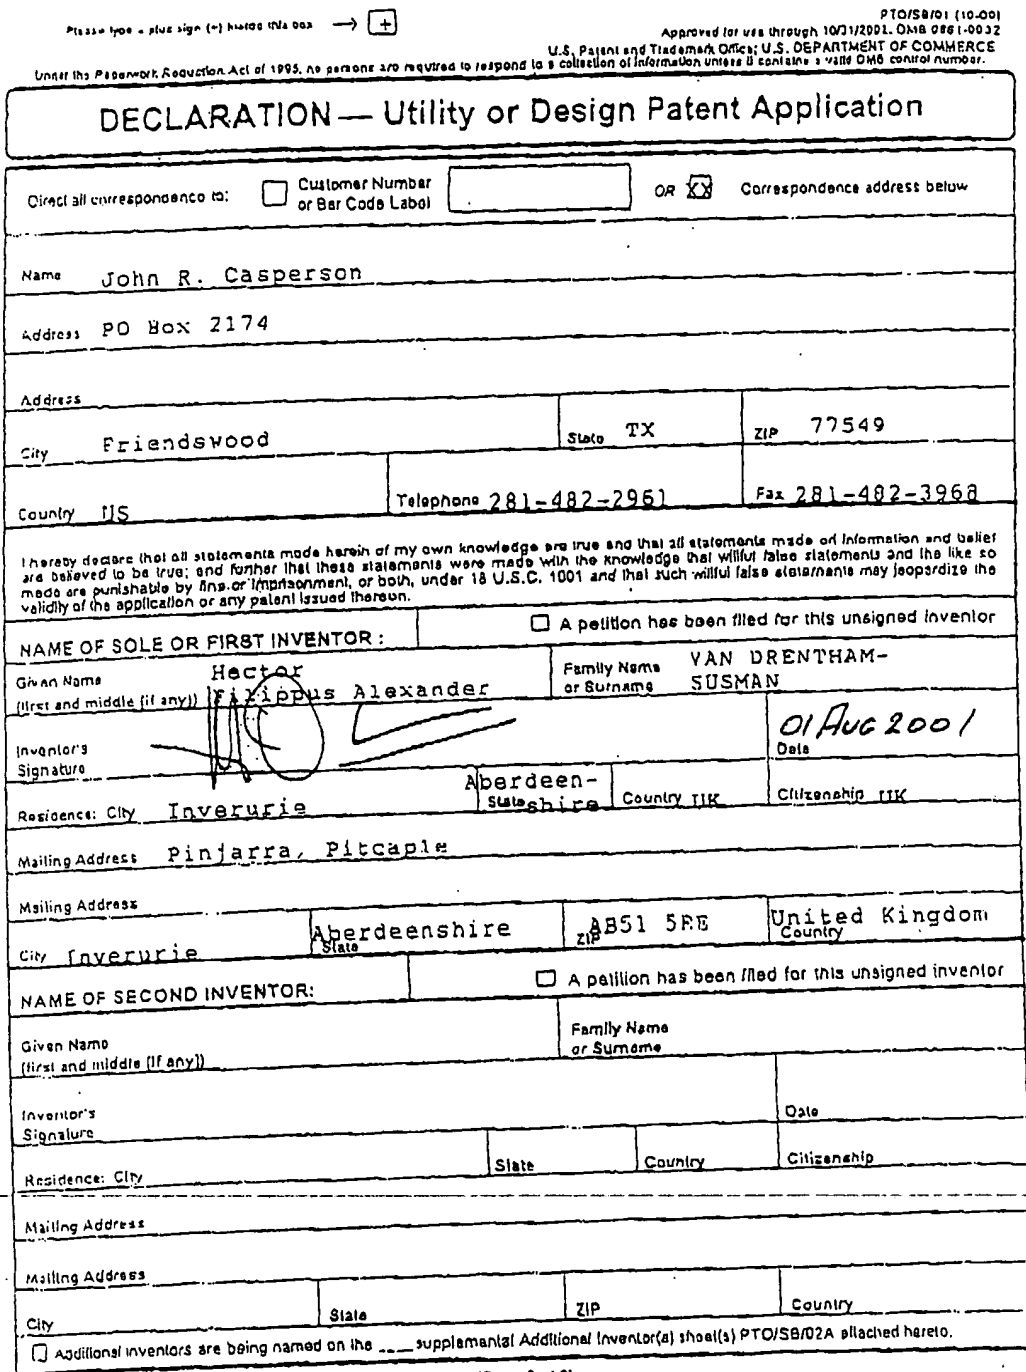 Please type a plus sign (+) inside this box → +
PTO/SB/01 (10-00)
Approved for use through 10/31/2002. OMB 0651-0032
U.S. Patent and Trademark Office; U.S. DEPARTMENT OF COMMERCE
Under the Paperwork Reduction Act of 1995, no persons are required to respond to a collection of information unless it contains a valid OMB control number.
DECLARATION — Utility or Design Patent Application
Direct all correspondence to: Customer Number or Bar Code Label OR XX Correspondence address below
Name John R. Casperson
Address PO Box 2174
Address
City Friendswood State TX ZIP 77549
Country US Telephone 281-482-2961 Fax 281-482-3968
I hereby declare that all statements made herein of my own knowledge are true and that all statements made on information and belief
are believed to be true; and further that these statements were made with the knowledge that willful false statements and the like so
made are punishable by fine or imprisonment, or both, under 18 U.S.C. 1001 and that such willful false statements may jeopardize the
validity of the application or any patent issued thereon.
NAME OF SOLE OR FIRST INVENTOR : A petition has been filed for this unsigned inventor
Given Name (first and middle [if any]) Hector Filippus Alexander Family Name or Surname VAN DRENTHAM-SUSMAN
Inventor's Signature 01 AUG 2001 Date
Residence: City Inverurie State Aberdeen-shire Country UK Citizenship UK
Mailing Address Pinjarra, Pitcaple
Mailing Address
City Inverurie State Aberdeenshire ZIP AB51 5EE Country United Kingdom
NAME OF SECOND INVENTOR: A petition has been filed for this unsigned inventor
Given Name (first and middle [if any]) Family Name or Surname
Inventor's Signature Date
Residence: City State Country Citizenship
Mailing Address
Mailing Address
City State ZIP Country
Additional inventors are being named on the ____ supplemental Additional Inventor(s) sheet(s) PTO/SB/02A attached hereto.